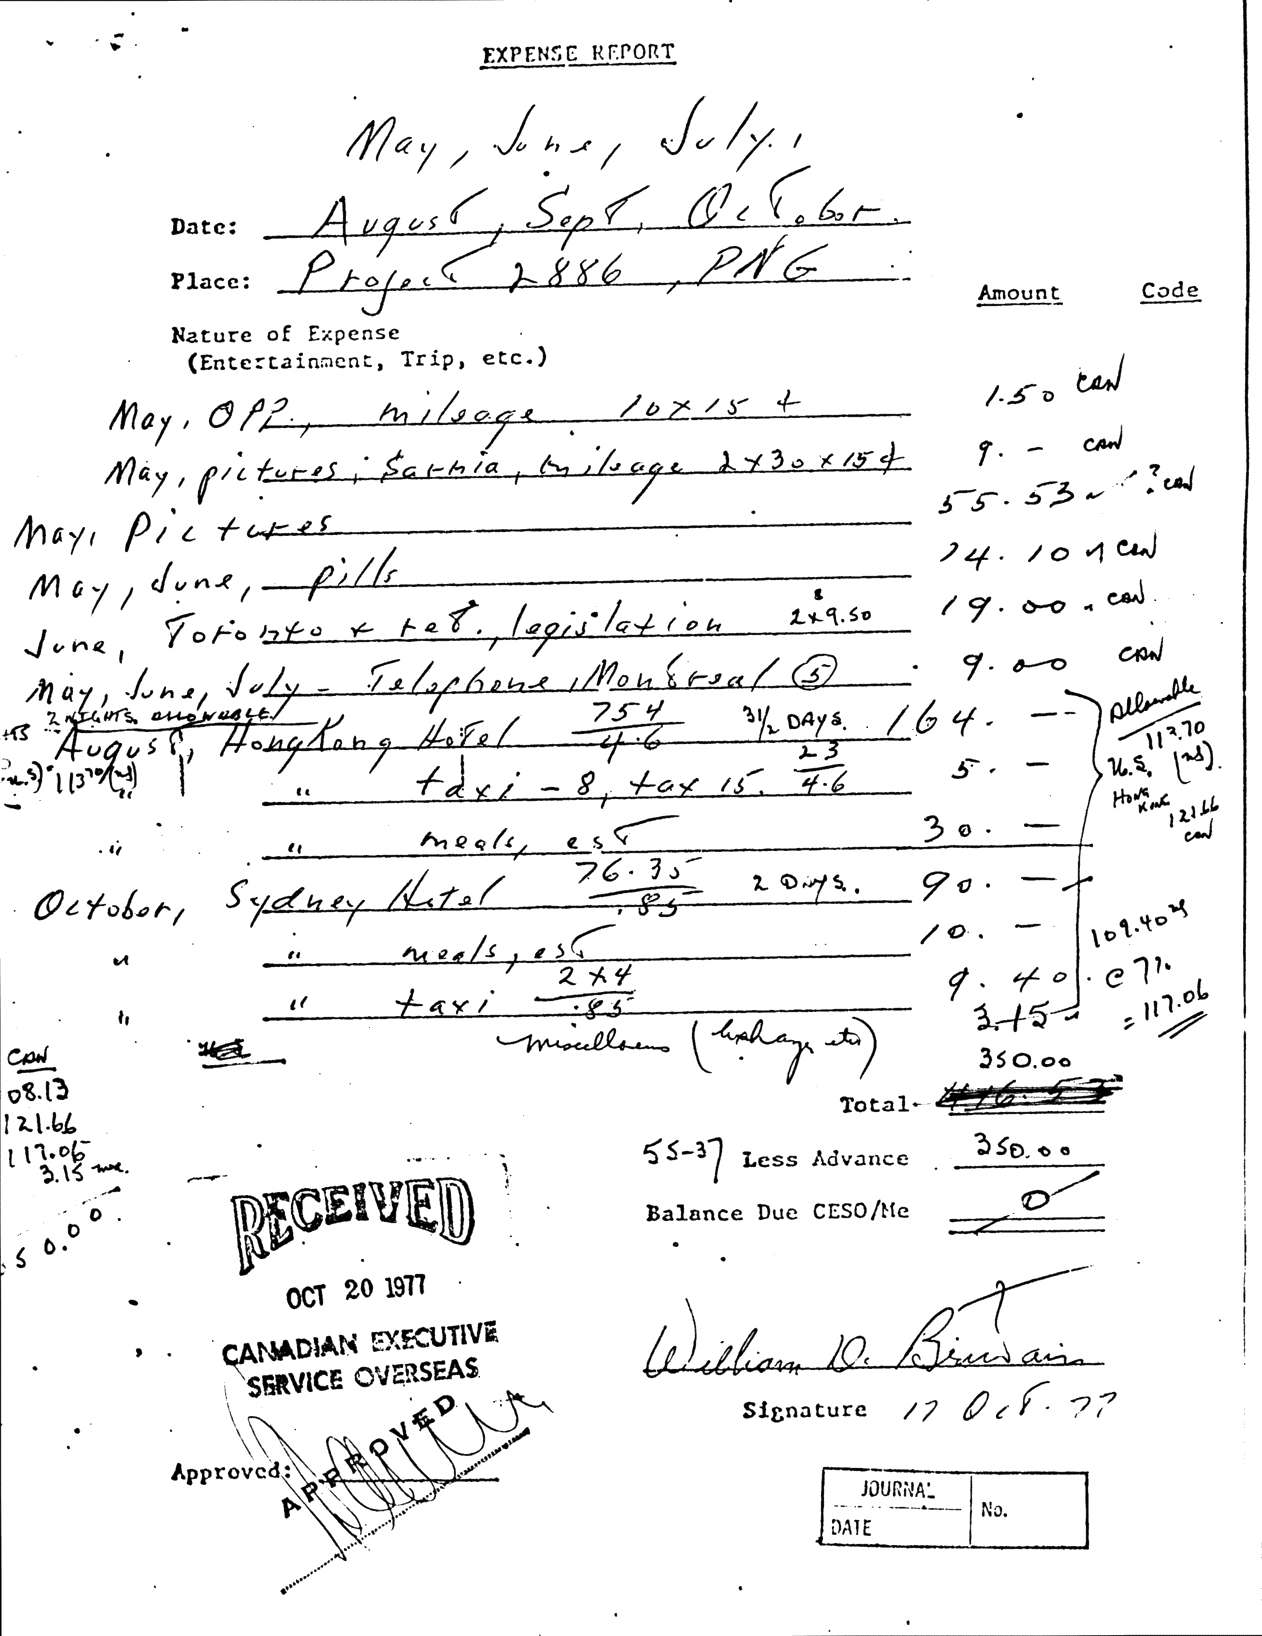 EXPENSE REPORT
May, June, July,
Date: August, Sept, October.
Place: Project 2886, PNG
Amount Code
Nature of Expense
(Entertainment, Trip, etc.)
May, OPP., mileage 10x15 ¢ 1.50 CAN
May, pictures, Sarnia, mileage 2x30x15¢ 9. - CAN
May, Pictures 55.53 ? CAN
May, June, pills 24.10 CAN
June, Toronto & ret., legislation 2x9.50 19.00 CAN
May, June, July - Telephone, Montreal (5) 9.00 CAN
2 NIGHTS. ALLOWABLE
August, HongKong Hotel 754/4.6 3 1/2 DAYS. 164. -
113.70 (US)
" taxi - 8, tax 15. 23/4.6 5. -
Allowable
113.70
U.S. (US).
HONG KONG
121.66
CAN
" " meals, est 30. -
October, Sydney Hotel 76.35/.85 2 DAYS. 90. -
" " meals, est 10. -
" " taxi 2x4/.85 9.40
109.40 US
@ 7%
= 117.06
Miscellaneous (Exchange, etc) 3.15
350.00
Total 416.53
CAN
08.13
121.66
117.06
3.15
50.00
55-37 Less Advance 350.00
Balance Due CESO/Me 0
RECEIVED
OCT 20 1977
CANADIAN EXECUTIVE
SERVICE OVERSEAS
William D.
Signature 17 Oct. 77
Approved:
APPROVED
JOURNAL
No.
DATE